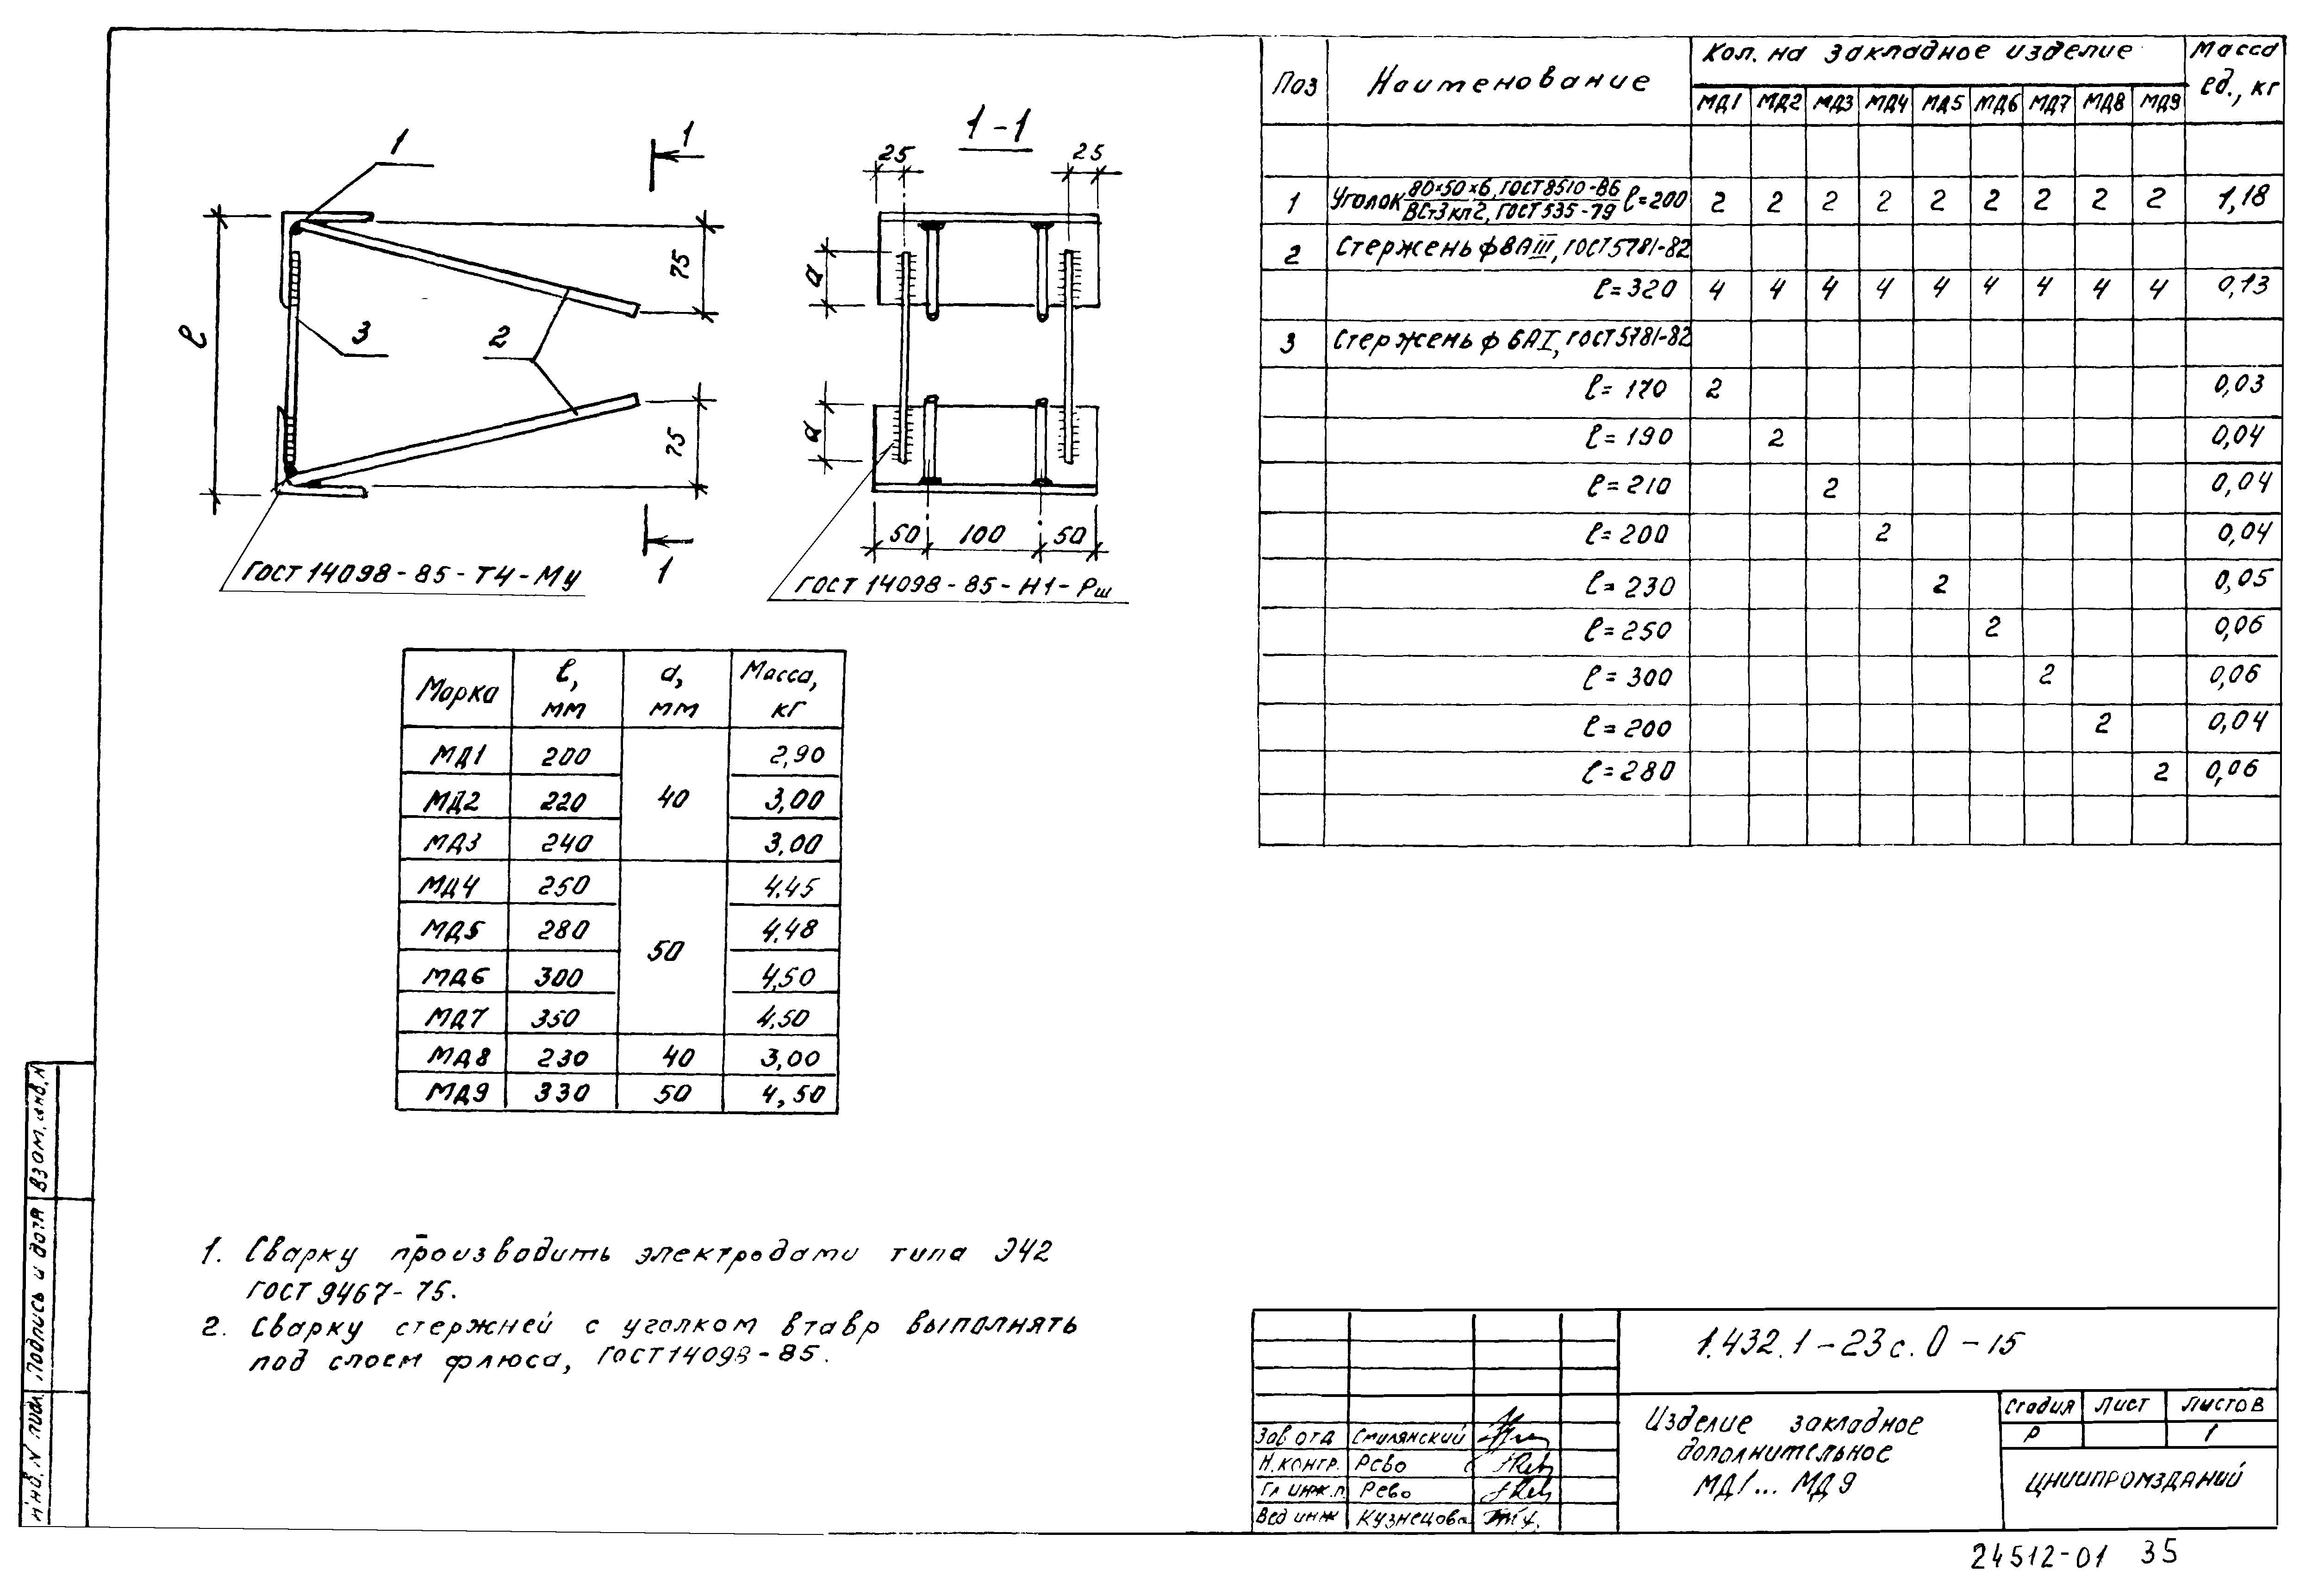 1
1
1
l
75
75
3
2
ГОСТ 14098-85-Т4-Му
1-1
25
25
а
а
50
100
50
ГОСТ 14098-85-Н1-Рш
Марка | l, мм | а, мм | Масса, кг
МД1 | 200 | 40 | 2,90
МД2 | 220 | 3,00
МД3 | 240 | 3,00
МД4 | 250 | 50 | 4.45
МД5 | 280 | 4.48
МД6 | 300 | 4,50
МД7 | 350 | 4,50
МД8 | 230 | 40 | 3,00
МД9 | 330 | 50 | 4,50
1. Сварку производить электродами типа Э42
ГОСТ 9467-75.
2. Сварку стержней с уголком втавр выполнять
под слоем флюса, ГОСТ 14098-85.
Поз | Наименование | Кол. на закладное изделие | Масса ед., кг
МД1 МД2 МД3 МД4 МД5 МД6 МД7 МД8 МД9
1 | Уголок 80×50×6, ГОСТ 8510-86 / ВСт3кп2, ГОСТ 535-79 l=200 | 2 2 2 2 2 2 2 2 2 | 1,18
2 | Стержень ф8АIII, ГОСТ 5781-82
l=320 | 4 4 4 4 4 4 4 4 4 | 0,13
3 | Стержень ф6АI, ГОСТ 5781-82
l=170 | 2 | 0,03
l=190 | 2 | 0,04
l=210 | 2 | 0,04
l=200 | 2 | 0,04
l=230 | 2 | 0,05
l=250 | 2 | 0,06
l=300 | 2 | 0,06
l=200 | 2 | 0,04
l=280 | 2 | 0,06
1.432.1-23с.0-15
Зав отд Смилянский
Н.контр. Рево
Гл инж.п. Рево
Вед инж Кузнецова
Изделие закладное
дополнительное
МД1... МД9
Стадия | Лист | Листов
Р | 1
ЦНИИПРОМЗДАНИЙ
24512-01 35
Инв. N подл. Подпись и дата Взам. инв. N